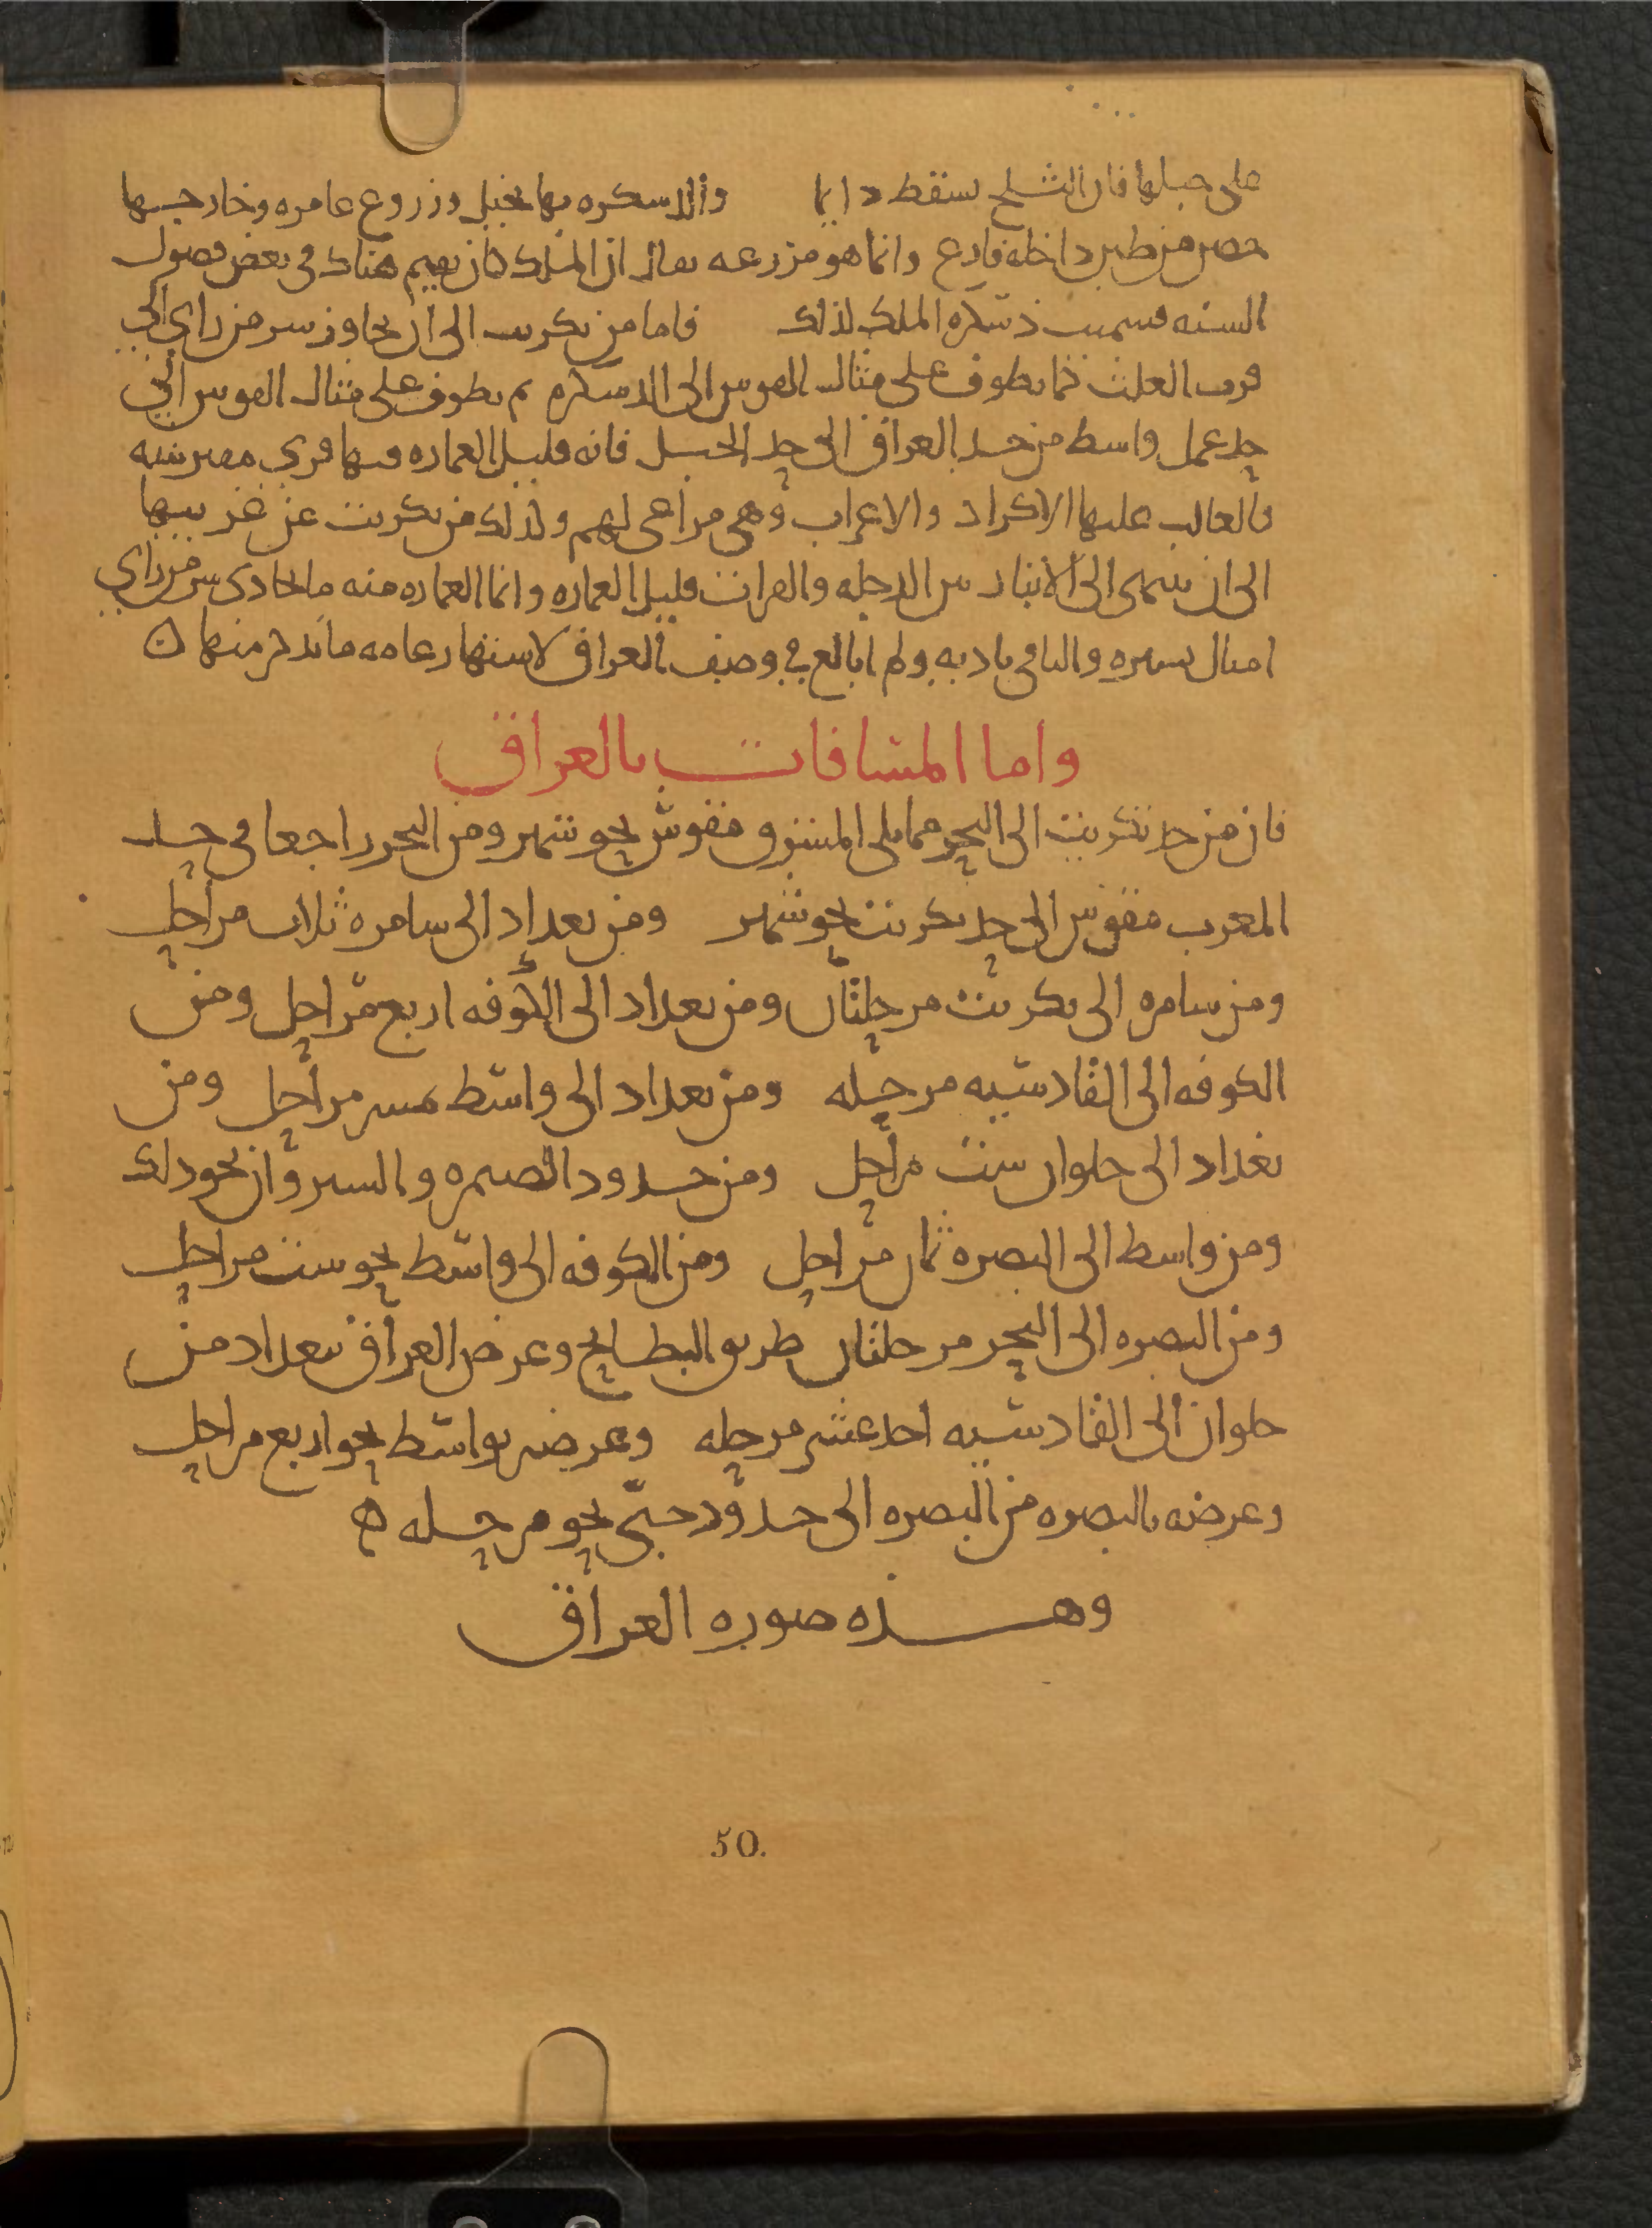 على جبلها فان الثلج يسقط دايما والدسكره بها نخيل وزروع عامره وخارجها
حصن من طين داخله فارع وانما هو مزرعه يقال ان الملك كان يقيم هناك في بعض فصول
السنه فسميت دسكره الملك لذلك فاما من تكريت الى ان تجاوز سر من راي الى
قرب العلث كما يطوف على مثال القوس الى الدسكره ثم يطوف على مثال القوس الى
حد عمل واسط من حد العراق الى حد الجبل فانه قليل العماره فيها قري مفترشه
فالغالب عليها الاكراد والاعراب وهي مراعى لهم ولذلك من تكريت عن غربيها
الى ان ينتهى الى الانبار بين الدجله والفرات قليل العماره وانما العماره منه ما يحادى سر من راي
اميال يسيره والباقى باديه ولم ابالغ في وصف العراق لاشتهار عامه ما يذكر منها ن
واما المسافات بالعراق
فان من حد تكريت الى البحر مما يلى المشرق مقوس نحو شهر ومن البحر راجعا في حد
المغرب مقوس الى حد تكريت نحو شهر ومن بغداد الى سامره ثلاث مراحل
ومن سامره الى تكريت مرحلتان ومن بغداد الى الكوفه اربع مراحل ومن
الكوفه الى القادسيه مرحله ومن بغداد الى واسط خمس مراحل ومن
بغداد الى حلوان ست مراحل ومن حدود الصيمره والسيروان نحو ذلك
ومن واسط الى البصره ثمان مراحل ومن الكوفه الى واسط نحو ست مراحل
ومن البصره الى البحر مرحلتان طريق البطايح وعرض العراق ببغداد من
حلوان الى القادسيه احد عشر مرحله وعرضه بواسط نحو اربع مراحل
وعرضه بالبصره من البصره الى حدود جبى نحو مرحله ه
وهذه صوره العراق
50.